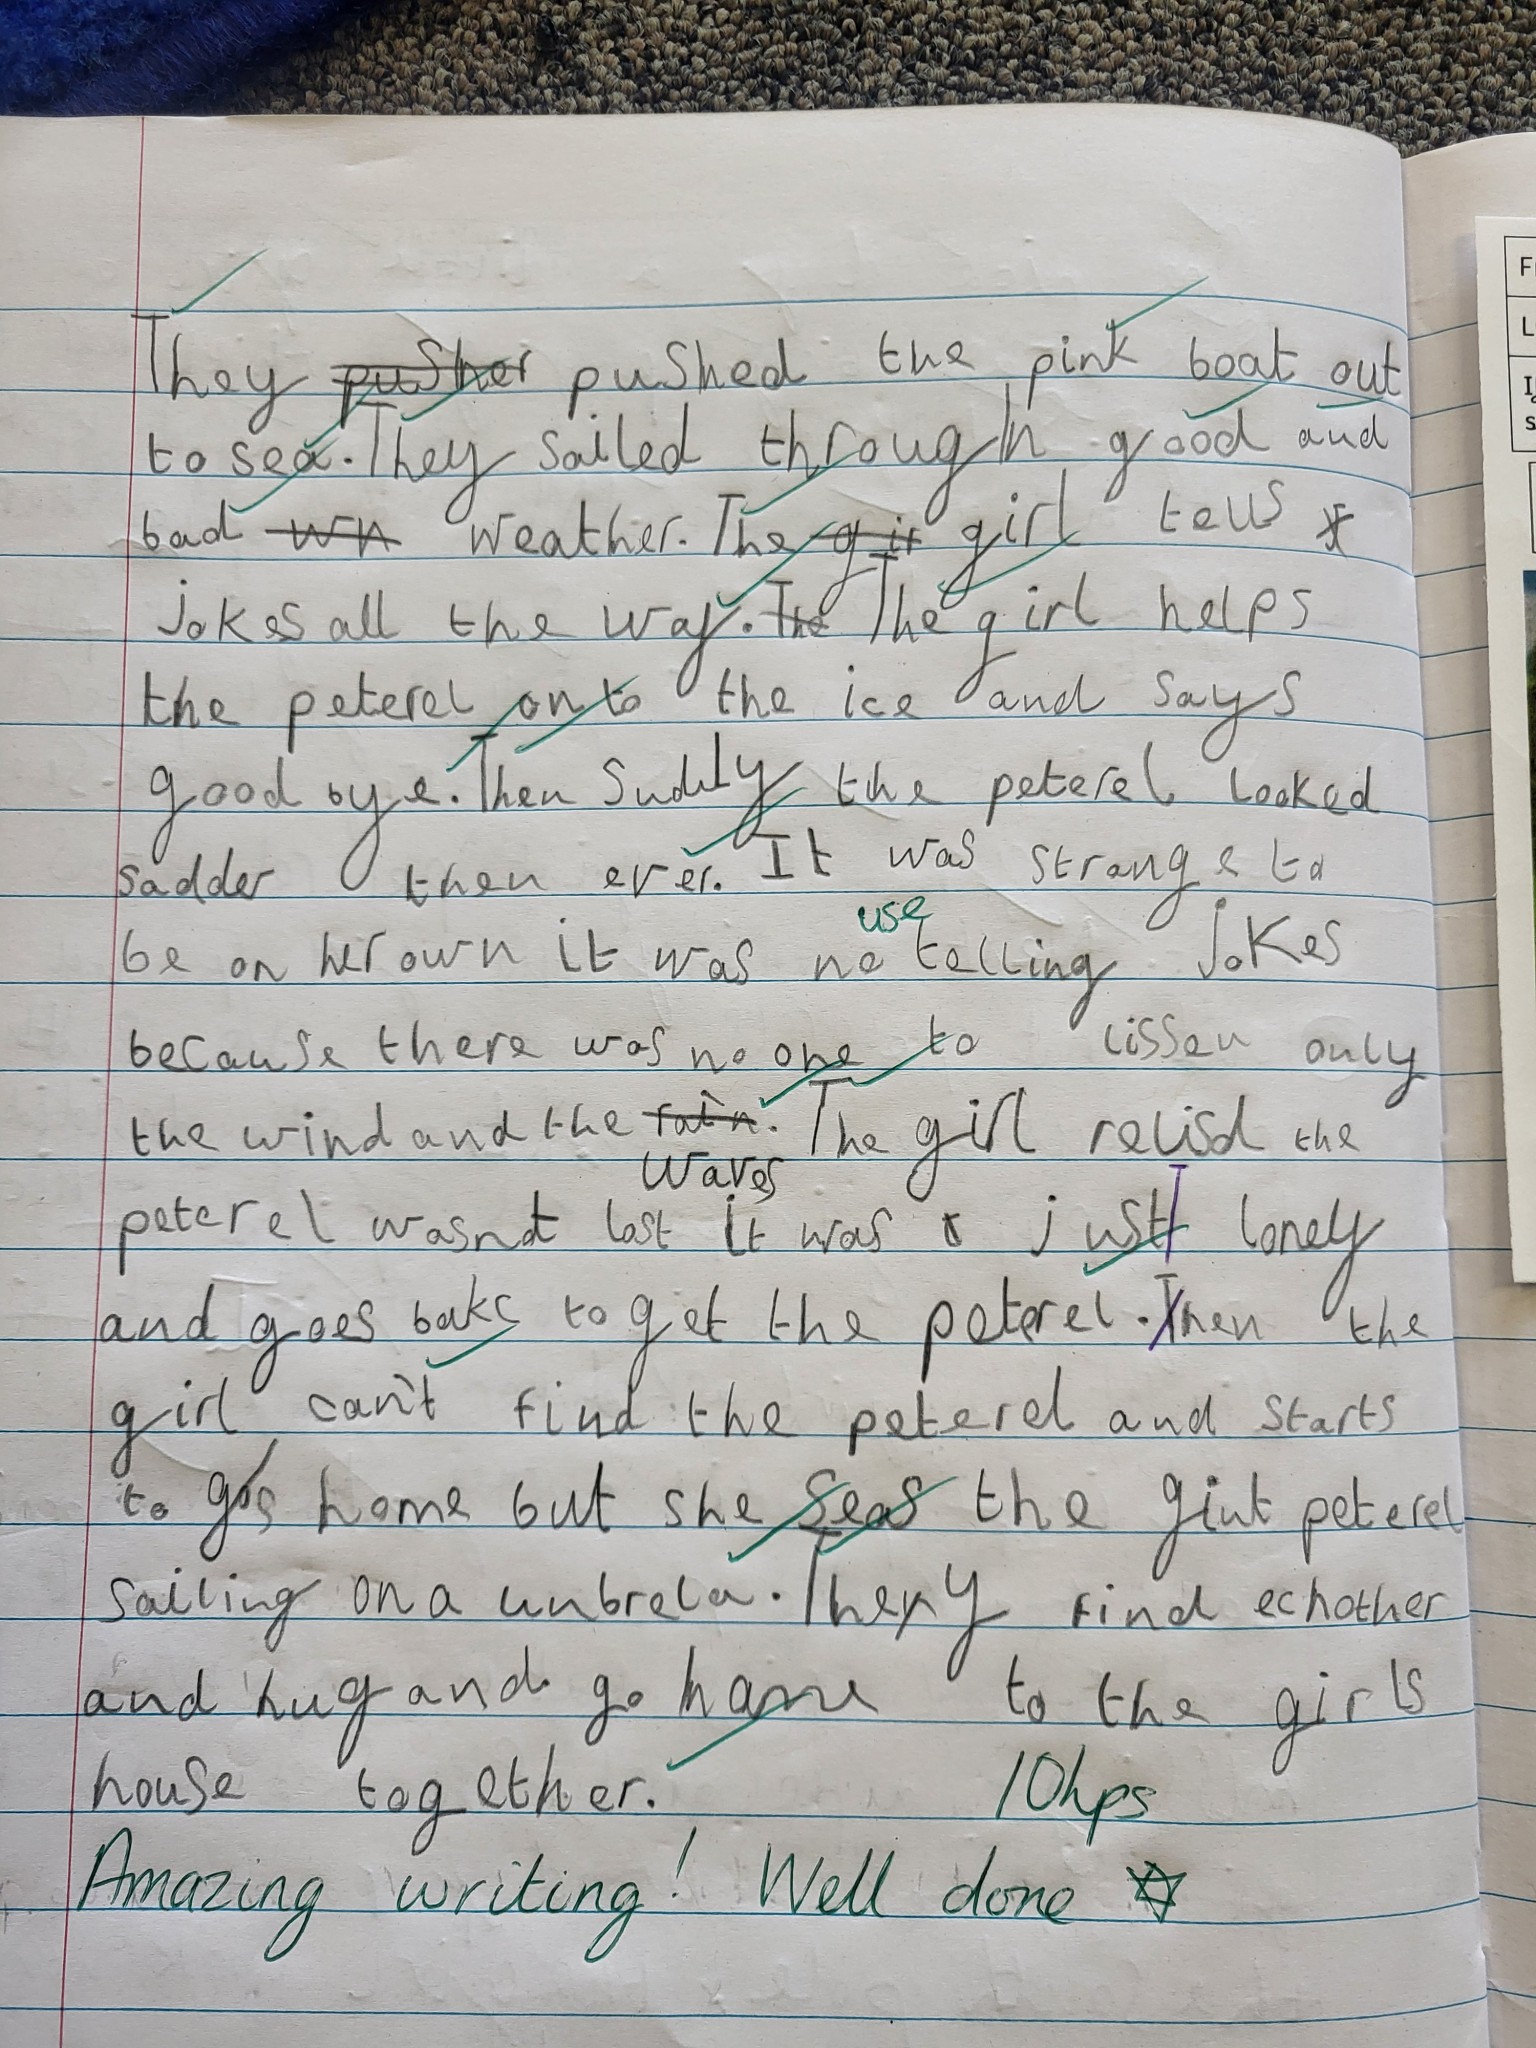 They pusher pushed the pink boat out
to sea. They sailed through good and
bad wn weather. The gir girl tells
jokes all the way. The The girl helps
the peterel onto the ice and says
good bye. Then Suddly the peterel looked
sadder then ever. It was strange to
use
be on her own it was no telling jokes
because there was no one to lissen only
the wind and the rain. The girl relisd the
waves
peterel wasnt lost it was just lonely
and goes bakc to get the peterel. Then the
girl can't find the peterel and starts
to go home but she seas the gint peterel
sailing on a unbrela. They find echother
and hug and go home to the girls
house together. 10hps
Amazing writing! Well done
F
L